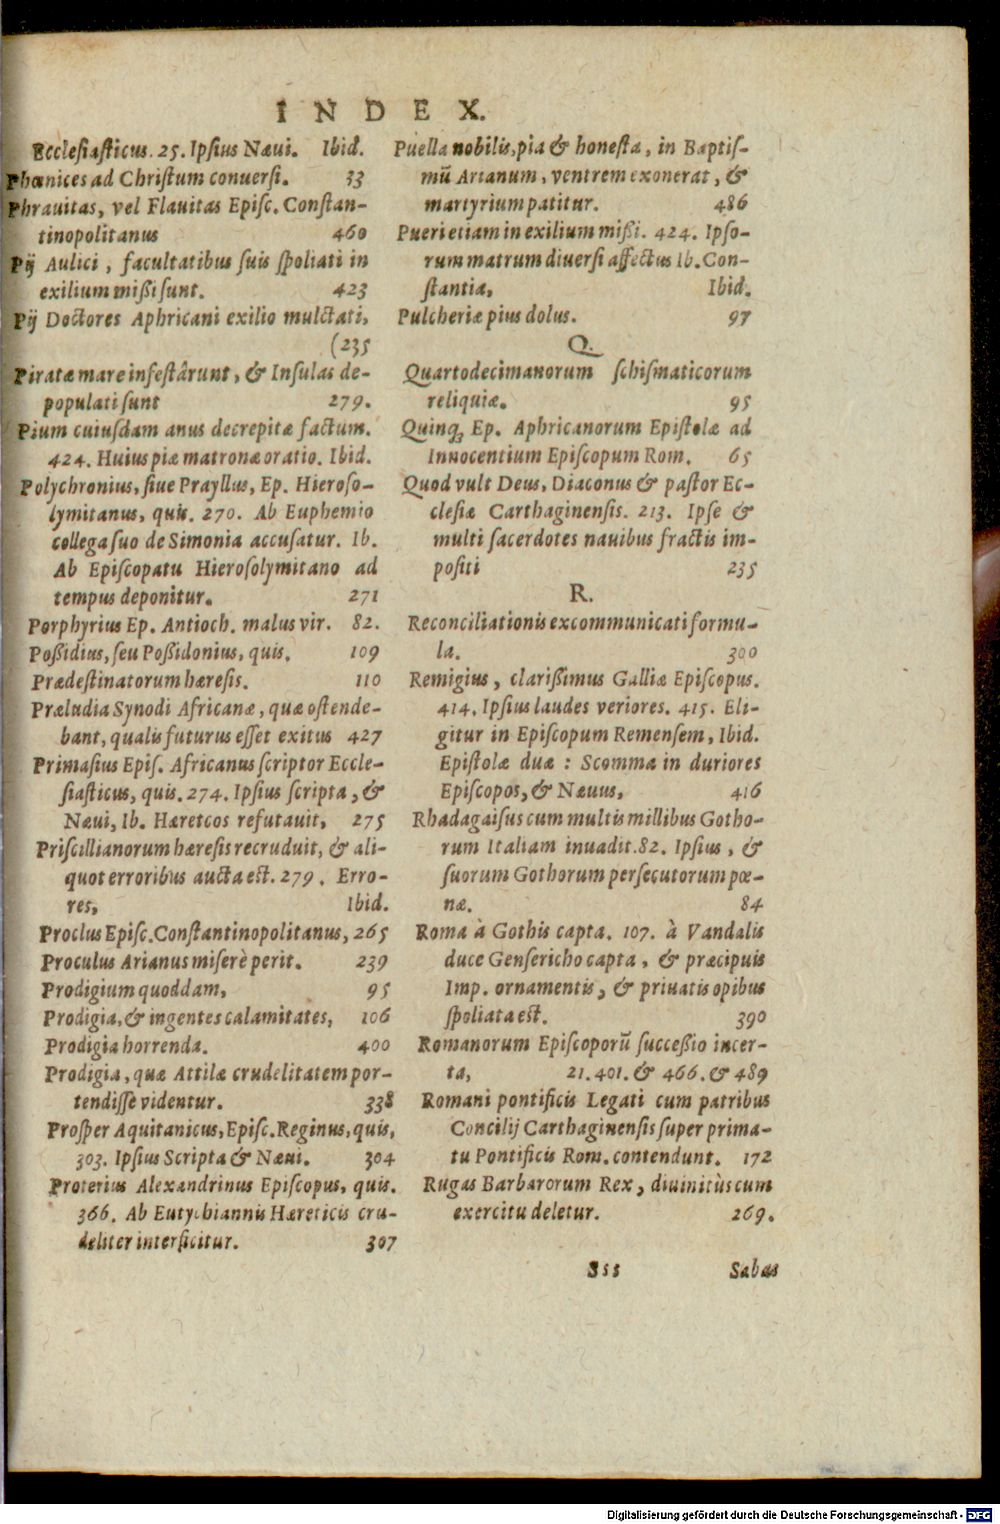 INDEX.
Ecclesiasticus. 25. Ipsius Nævi. Ibid.
Phœnices ad Christum conuersi. 33
Phrauitas, vel Flauitas Episc. Constan-
tinopolitanus 460
Pij Aulici, facultatibus suis spoliati in
exilium mißi sunt. 423
Pij Doctores Aphricani exilio mulctati,
(235
Piratæ mare infestârunt, & Insulas de-
populati sunt 279.
Pium cuiusdam anus decrepitæ factum.
424. Huius piæ matronæ oratio. Ibid.
Polychronius, siue Prayllus, Ep. Hieroso-
lymitanus, quis. 270. Ab Euphemio
collega suo de Simonia accusatur. Ib.
Ab Episcopatu Hierosolymitano ad
tempus deponitur. 271
Porphyrius Ep. Antioch. malus vir. 82.
Poßidius, seu Poßidonius, quis. 109
Prædestinatorum hæresis. 110
Præludia Synodi Africanæ, quæ ostende-
bant, qualis futurus esset exitus 427
Primasius Epis. Africanus scriptor Eccle-
siasticus, quis. 274. Ipsius scripta, &
Nævi, Ib. Hæretcos refutauit, 275
Priscillianorum hæresis recruduit, & ali-
quot erroribus aucta est. 279. Erro-
res, Ibid.
Proclus Episc. Constantinopolitanus, 265
Proculus Arianus miserè perit. 239
Prodigium quoddam, 95
Prodigia, & ingentes calamitates, 106
Prodigia horrenda. 400
Prodigia, quæ Attilæ crudelitatem por-
tendisse videntur. 338
Prosper Aquitanicus, Episc. Reginus, quis,
303. Ipsius Scripta & Nævi. 304
Proterius Alexandrinus Episcopus, quis.
366. Ab Eutychiannis Hæreticis cru-
deliter interficitur. 307
Puella nobilis, pia & honesta, in Baptis-
mũ Arianum, ventrem exonerat, &
martyrium patitur. 486
Pueri etiam in exilium mißi. 424. Ipso-
rum matrum diuersi affectus Ib. Con-
stantia, Ibid.
Pulcheriæ pius dolus. 97
Q.
Quartodecimanorum schismaticorum
reliquiæ. 95
Quinq; Ep. Aphricanorum Epistolæ ad
Innocentium Episcopum Rom. 65
Quod vult Deus, Diaconus & pastor Ec-
clesiæ Carthaginensis. 213. Ipse &
multi sacerdotes nauibus fractis im-
positi 235
R.
Reconciliationis excommunicati formu-
la. 300
Remigius, clarißimus Galliæ Episcopus.
414. Ipsius laudes veriores. 415. Eli-
gitur in Episcopum Remensem, Ibid.
Epistolæ duæ: Scomma in duriores
Episcopos, & Næuus, 416
Rhadagaisus cum multis millibus Gotho-
rum Italiam inuadit. 82. Ipsius, &
suorum Gothorum persecutorum pœ-
næ. 84
Roma à Gothis capta. 107. à Vandalis
duce Gensericho capta, & præcipuis
Imp. ornamentis, & priuatis opibus
spoliata est. 390
Romanorum Episcoporũ succeßio incer-
ta, 21. 401. & 466. & 489
Romani pontificis Legati cum patribus
Concilij Carthaginensis super prima-
tu Pontificis Rom. contendunt. 172
Rugas Barbarorum Rex, diuinitùs cum
exercitu deletur. 269.
Sss Sabas
Digitalisierung gefördert durch die Deutsche Forschungsgemeinschaft - DFG